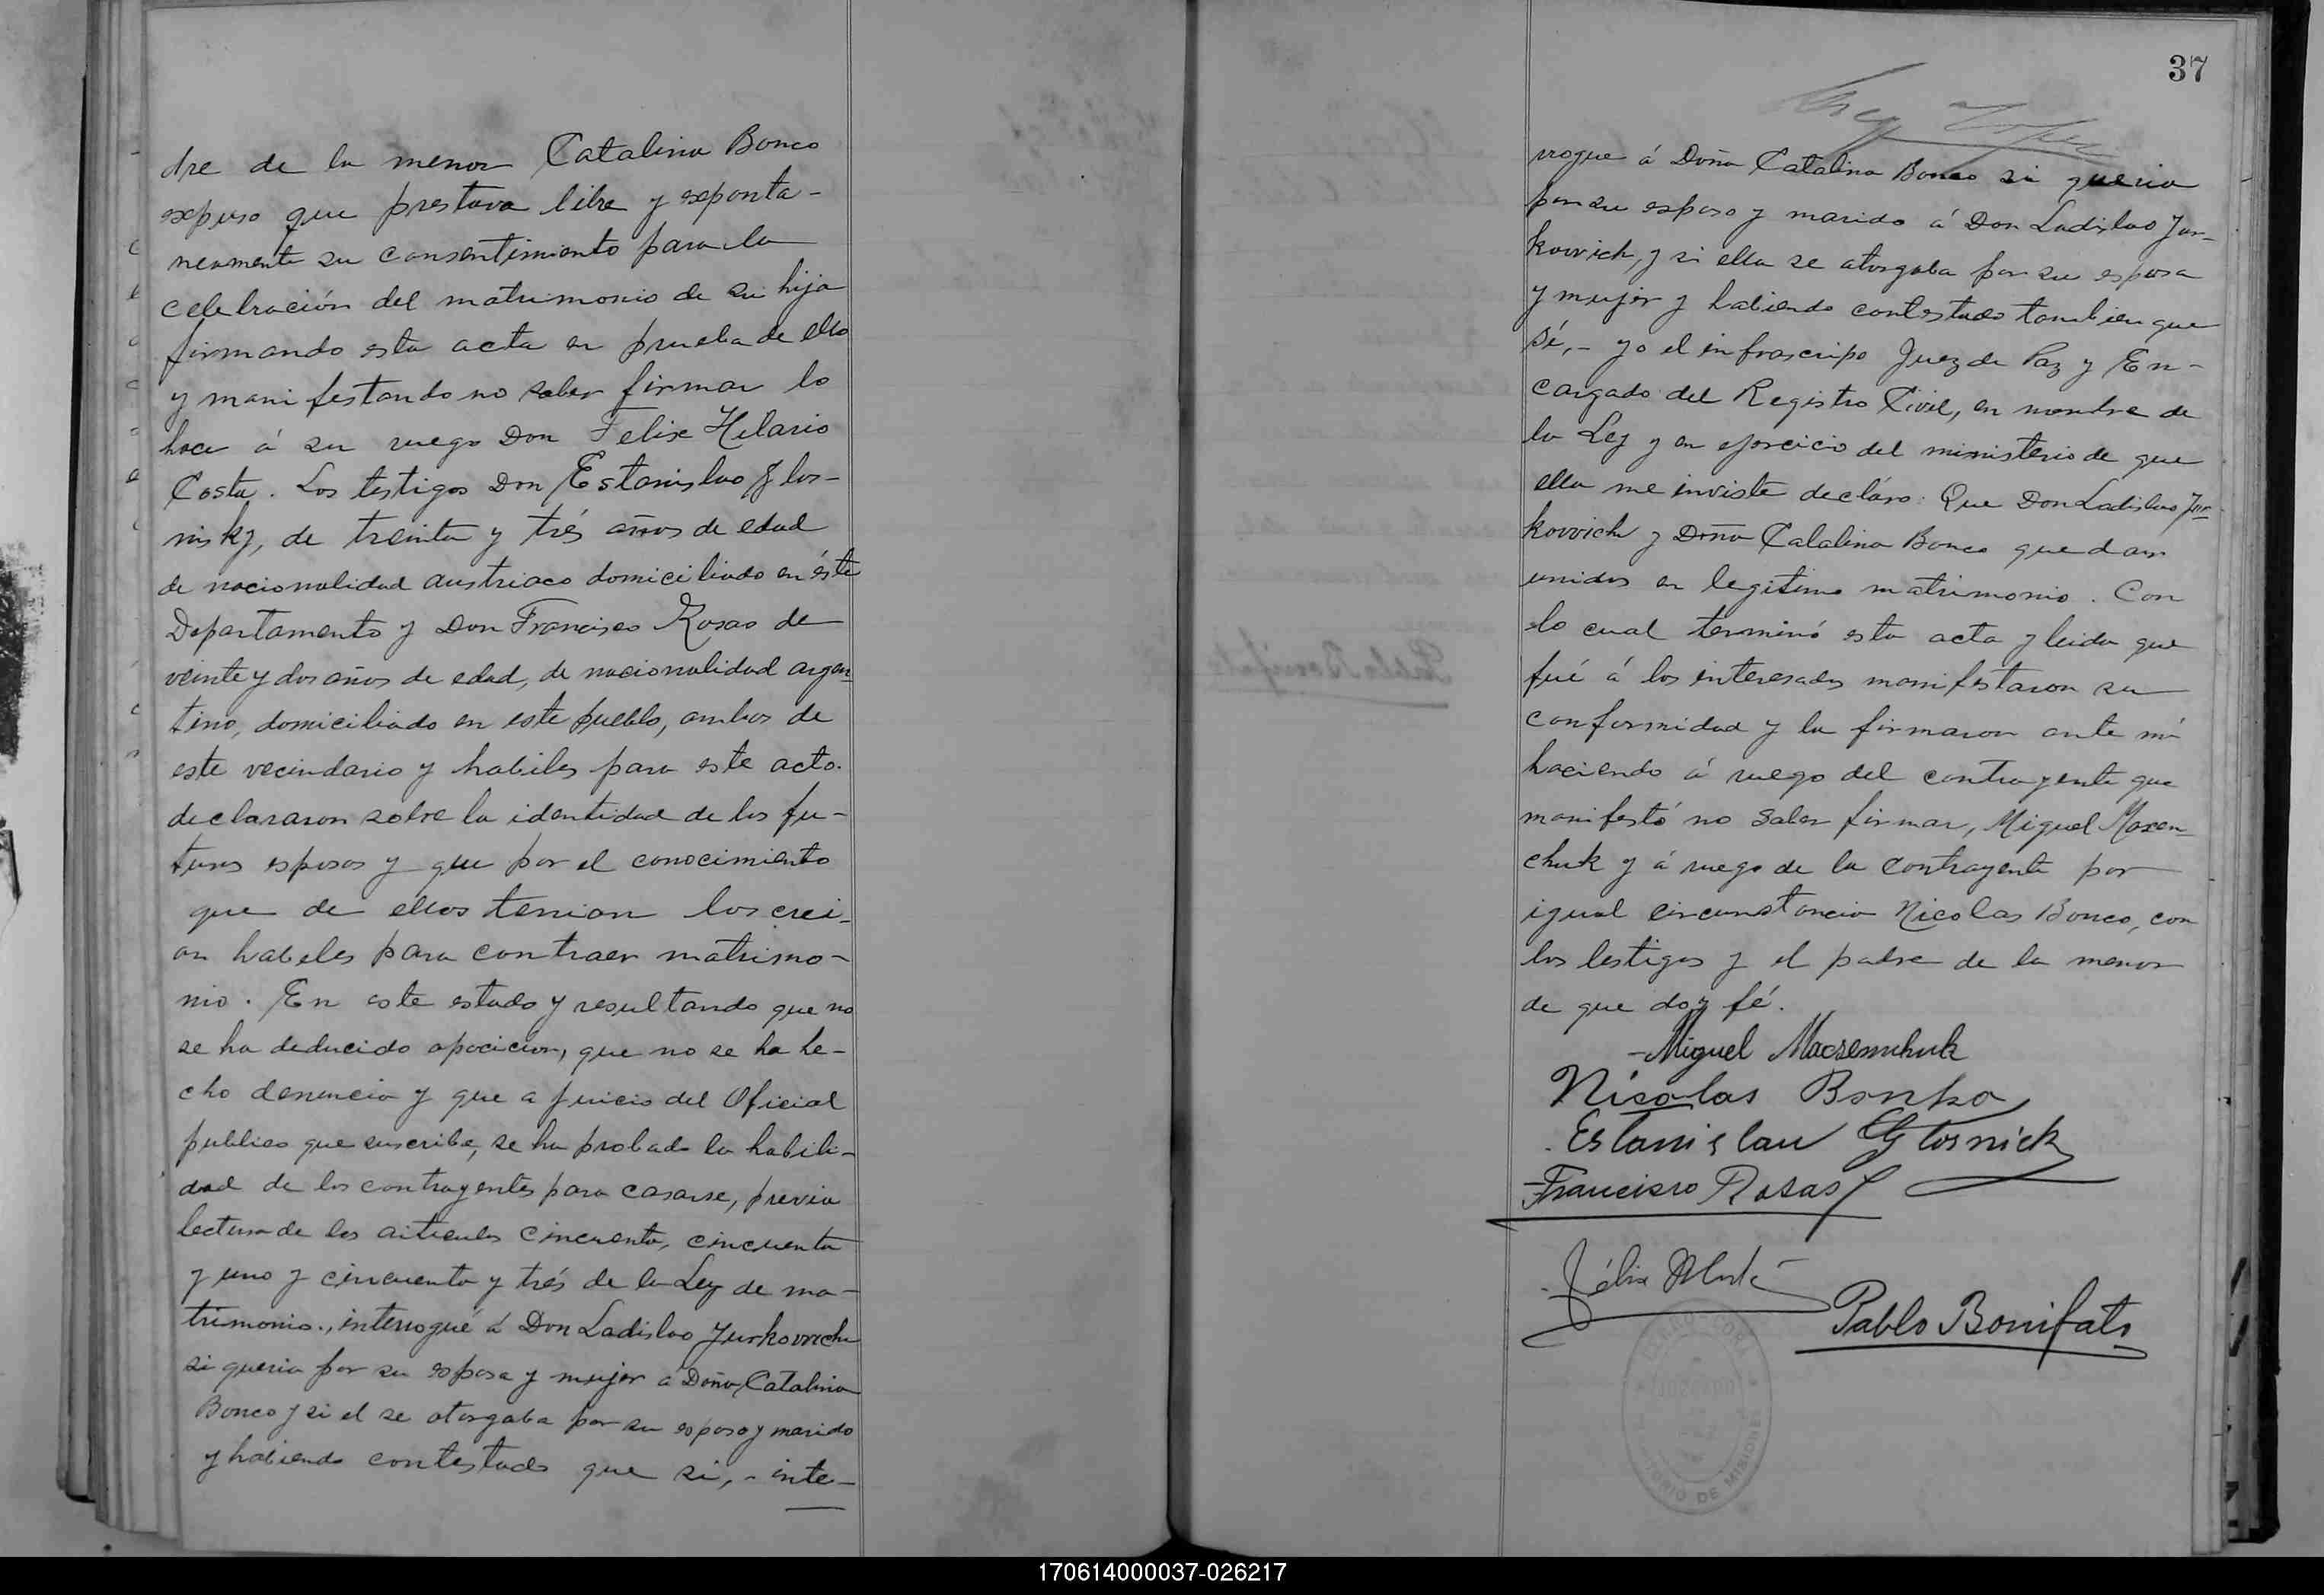 dre de la menor Catalina Bonco
expuso que prestava libre y exponta-
neamente su consentimiento para la
celebración del matrimonio de su hija
firmando esta acta en prueba de ello
y manifestando no saber firmar lo
hace á su ruego Don Felix Hilario
Costa. Los testigos Don Estanislao Glos-
nisky, de treinta y trés años de edad
de nacionalidad austriaco domiciliado en éste
Departamento y Don Francisco Rosas de
veinte y dos años de edad, de nacionalidad argen-
tino, domiciliado en este pueblo, ambos de
este vecindario y habiles para este acto.
declararon sobre la identidad de los fu-
turos esposos y que por el conocimiento
que de ellos tenian los crei-
an habeles para contraer matrimo-
nio. En este estado y resultando que no
se ha deducido oposicion, que no se ha he-
cho denuncia y que a juicio del Oficial
publico que suscribe, se ha probado la habili-
dad de los contrayentes para casarse, previa
lectura de los articulos cincuenta, cincuenta
y uno y cincuenta y trés de la Ley de ma-
trimonio., interrogué á Don Ladislao Jurkovvich
si queria por su esposa y mujer á Doña Catalina
Bonco y si el se otorgaba por su esposo y marido
y habiendo contestado que si, - inte-
37
rrogue á Doña Catalina Bonco si queria
por su esposo y marido á Don Ladislao Jur-
kovvich, y si ella se otorgaba por su esposa
y mujer y habiendo contestado tambien que
sí, - yo el infrascripo Juez de Paz y En-
cargado del Registro Civil, en nombre de
la Ley y en ejercicio del ministerio de que
ella me inviste decláro: Que Don Ladislao Jur-
kovvich y Doña Catalina Bonco quedan
unidos en legitimo matrimonio. Con
lo cual terminó esta acta y leida que
fué á los interesados manifestaron su
conformidad y la firmaron ante mi
haciendo á ruego del contrayente que
manifestó no saber firmar, Miguel Maxen-
chuk y á ruego de la contrayente por
igual circunstancia Nicolas Bonco, con
los testigos y el padre de la menor
de que doy fé.
Miguel Macsemchuk
Nicolas Bonko
Estanislau Glosnick
Francisco Rosas
Félix
Pablo Bonifato
170614000037-026217